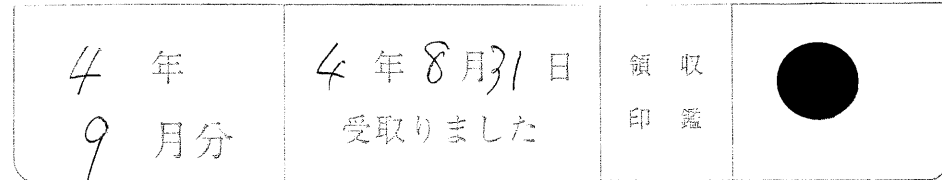 4年
9月分
4年8月31日
受取りました
領収
印鑑